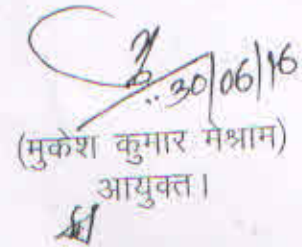 30/06/16
(मुकेश कुमार मेश्राम)
आयुक्त।